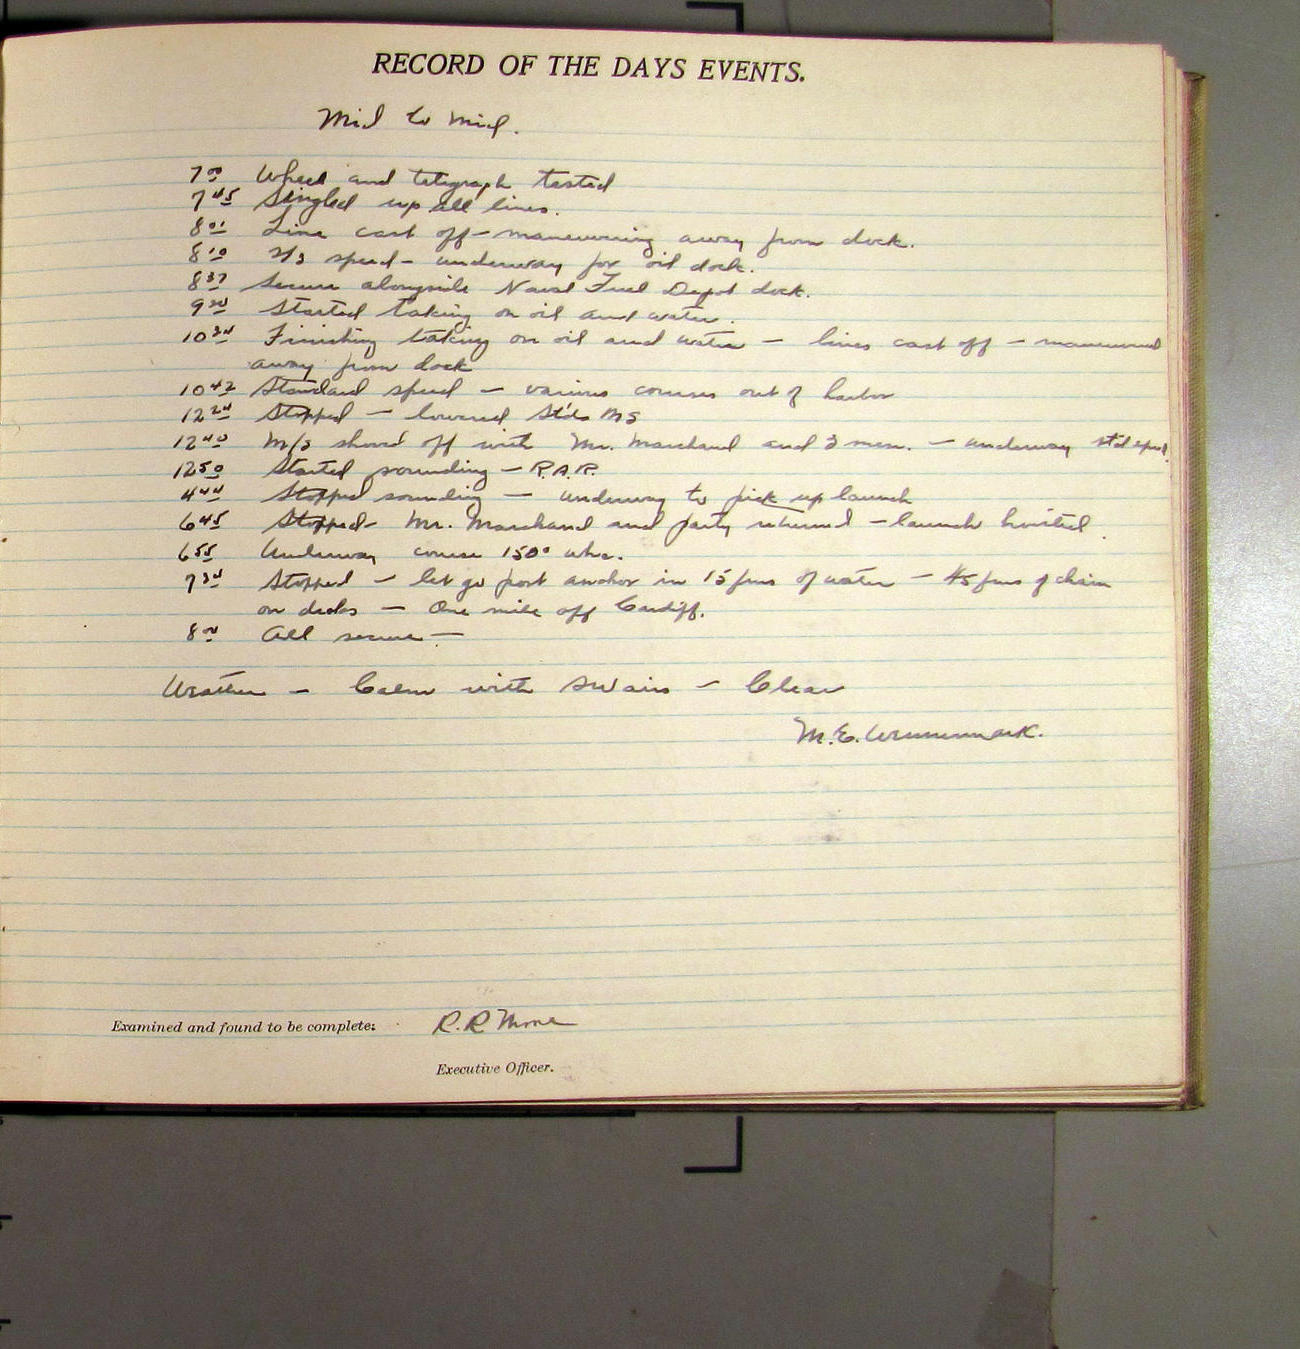 RECORD OF THE DAYS EVENTS.
Mid to Mid.
7 00 Wheel and telegraph tested
7 45 Singled up all lines.
8 01 Line cast off - maneuvering away from dock.
8 10 2/3 speed - underway for oil dock.
8 37 Secure alongside Naval Fuel Depot dock.
9 20 Started taking on oil and water.
10 34 Finishing taking on oil and water - lines cast off - maneuvered
away from dock
10 42 Standard speed - various courses out of harbor
12 24 Stopped - lowered
12 40 shoved off with Mr. Marchand and 3 men. - underway std speed.
12 50 Started sounding - R.A.R.
4 44 Stopped sounding - underway to pick up launch
6 45 Stopped - Mr. Marchand and party returned - launch hoisted.
6 55 Underway course 150°
7 34 Stopped - let go port anchor in 15 fms of water - 45 fms of chain
on - One mile off Cardiff.
8 00 All secure -
Weather - Calm with - Clear
M.E. Wennermark.
Examined and found to be complete: R.R. Moore
Executive Officer.